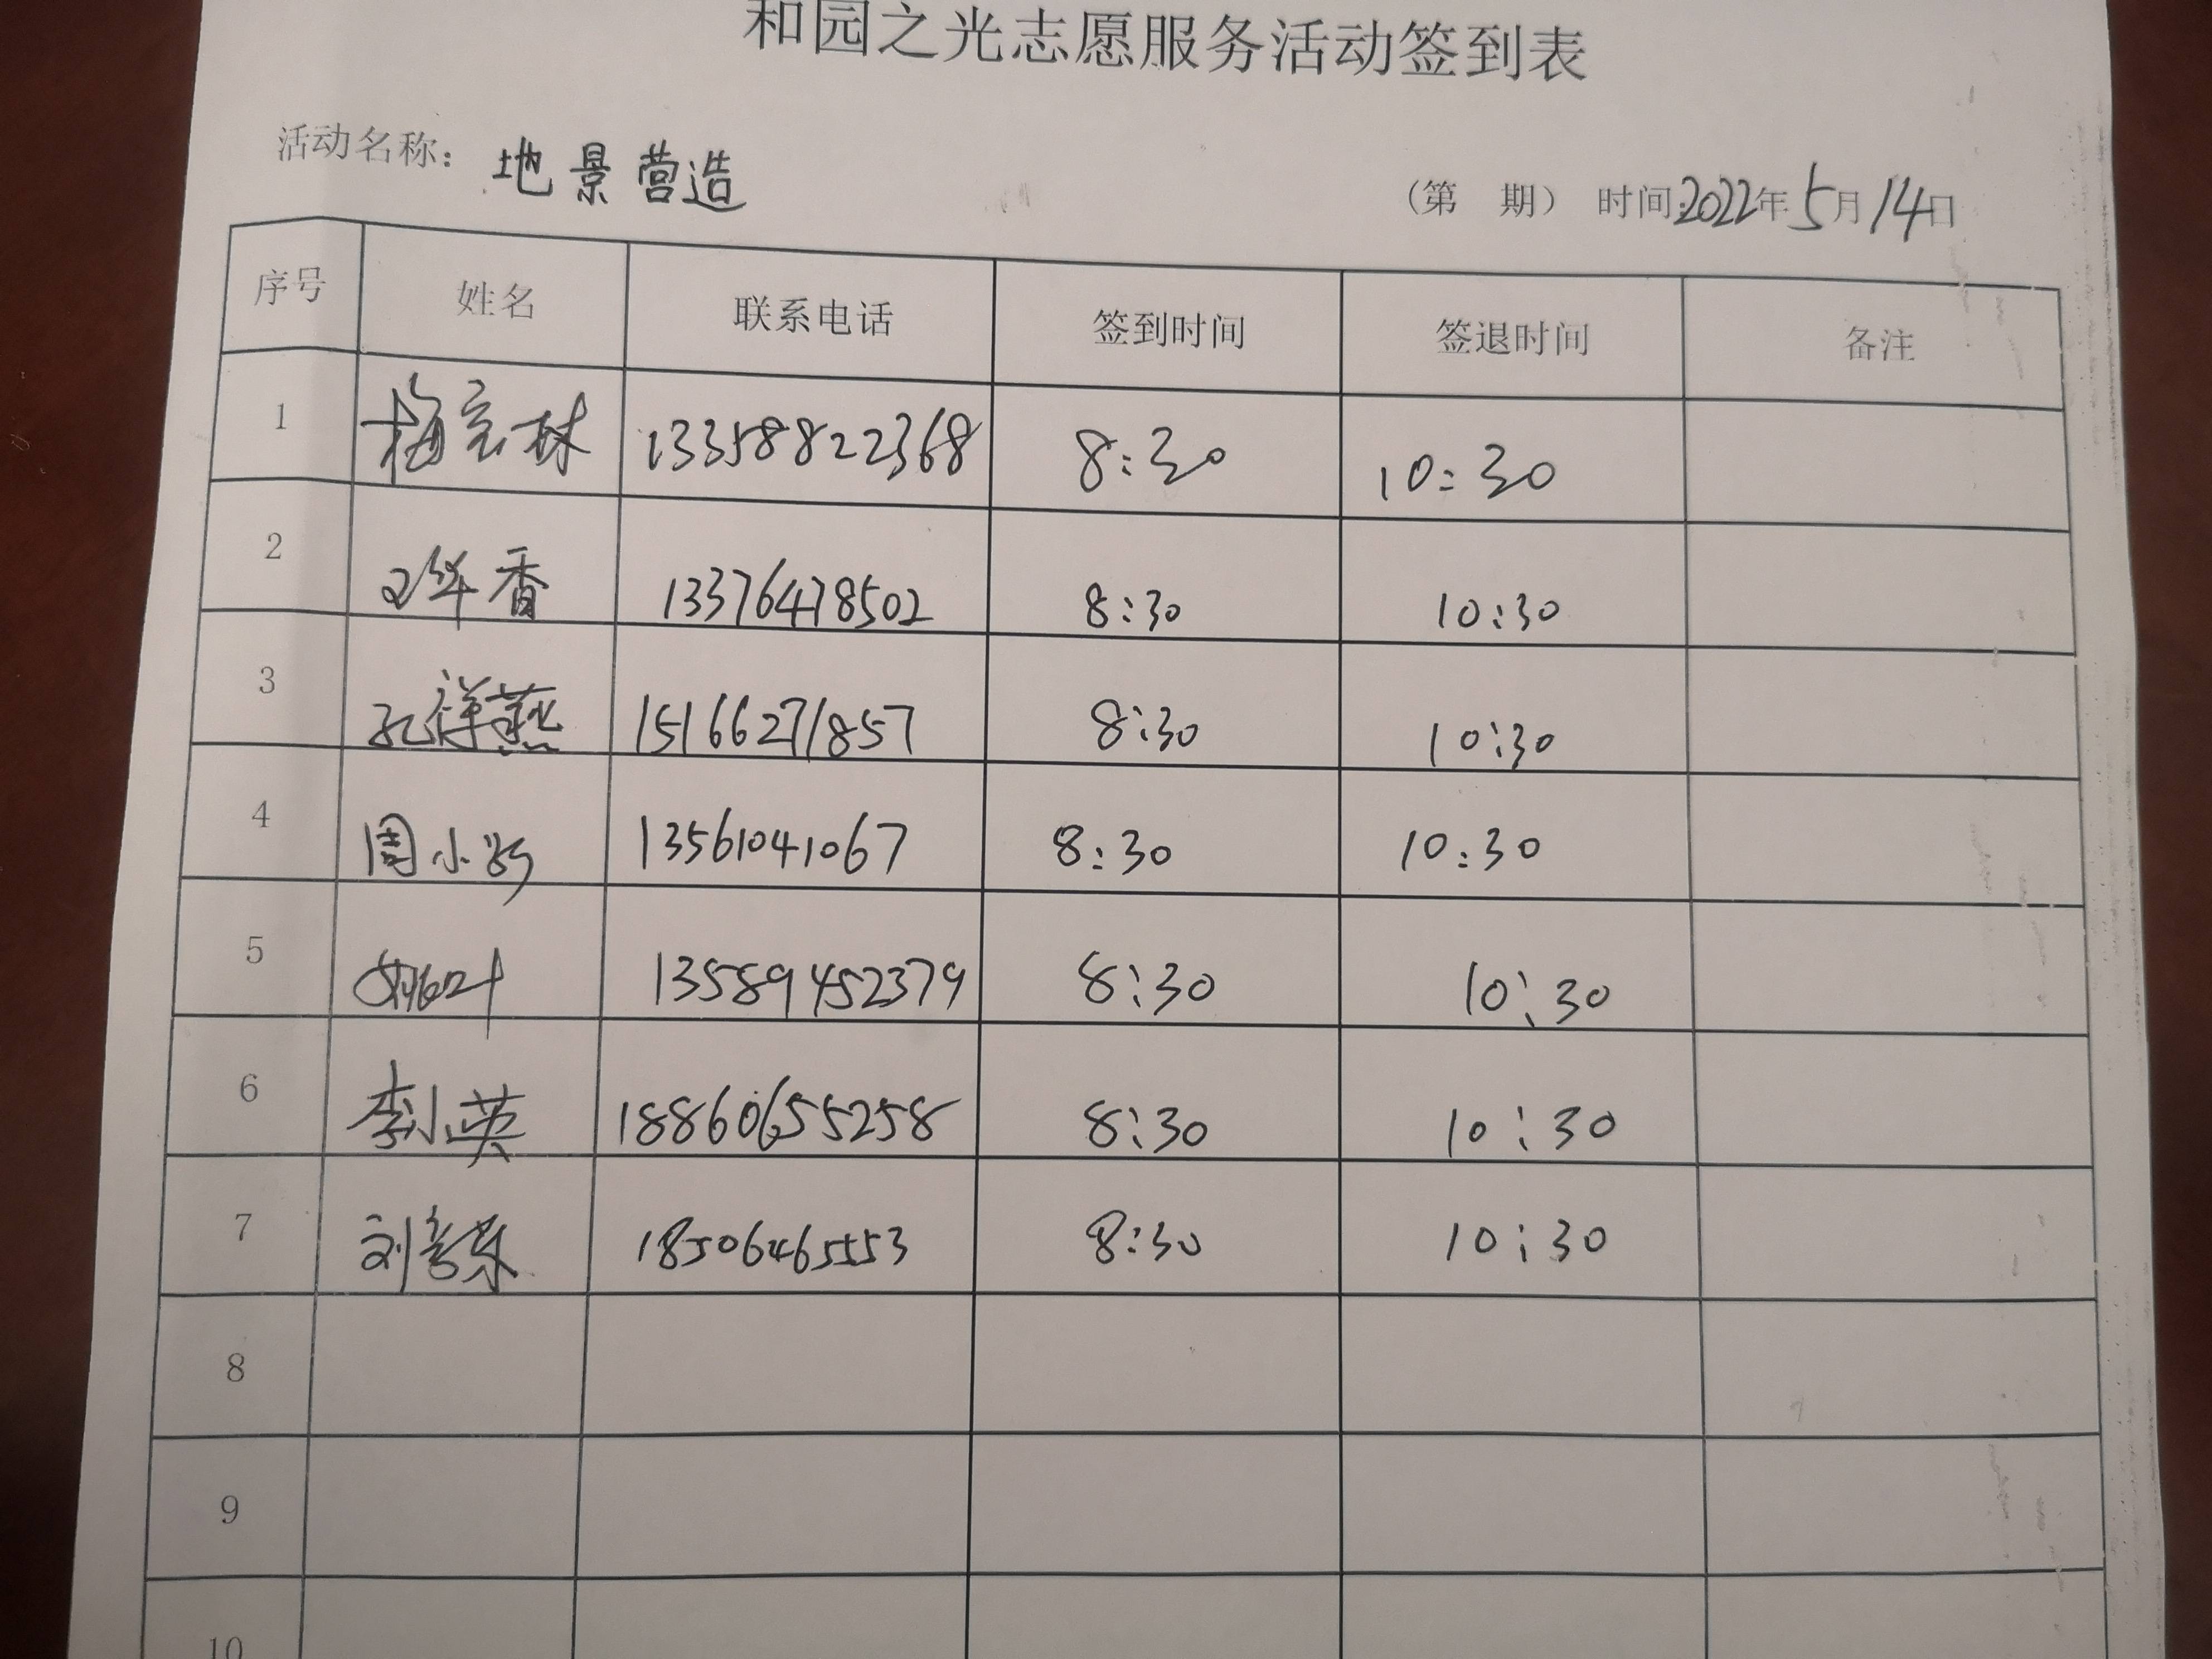 和园之光志愿服务活动签到表
活动名称：地景营造
（第 期） 时间2022年5月14日
序号 姓名 联系电话 签到时间 签退时间 备注
1 梅 林 13358822368 8:30 10:30
2 香 13376478502 8:30 10:30
3 孔祥燕 15166271857 8:30 10:30
4 周小 13561041067 8:30 10:30
5 13589452379 8:30 10:30
6 李小英 18860655258 8:30 10:30
7 刘 东 18506465553 8:30 10:30
8
9
10